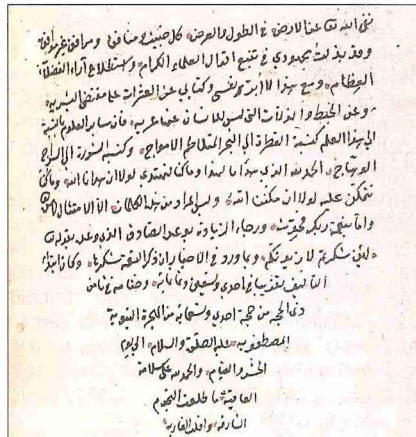 نفى الله تعا عن الارض في الطول والعرض كل خبيث ومنافق ومرافق غير موافق
وقد بذلت مجهودي في تتبع اقوال العلماء الكرام واستطلاع آراء الفضلاء
العظام، ومع هذا لا ابرئ نفسي وكتابي عن العثرات على مقتضى البشرية
وعن الخبط والزلات التي ليس للانسان عنها عرية، فان سائر العلوم بالنسبة
الى هذا العلم كنسبة القطرة الى البحر المتلاطم الامواج، وكنسبة الى السراج
الوهاج، الحمد لله الذي هدانا لهذا وما كنا لنهتدي لولا ان هدانا الله وما كنا
نتمكن عليه لولا ان مكننا الله، وليس المراد من هذه الكلمات الا الامتثال
واما بنعمة ربك فحدث، ورجاء الزيادة بوعد الصادق الذي وعد بقوله تعا
لئن شكرتم لازيدنكم، وبما ورد في الاخبار ان ذكر النعمة شكرها، وكان ابتداء
التأليف تقريبا في احدى وتسعين وثمانمائة، وختامه في ثامن
ذي الحجة من حجة احدى وتسعمائة من الهجرة النبوية
المصطفوية عليه الصلوة والسلام الى يوم
الحشر والقيام، والحمد لله على سلامة
العافية ما طلعت النجوم
الشارقة وافلت الغاربة